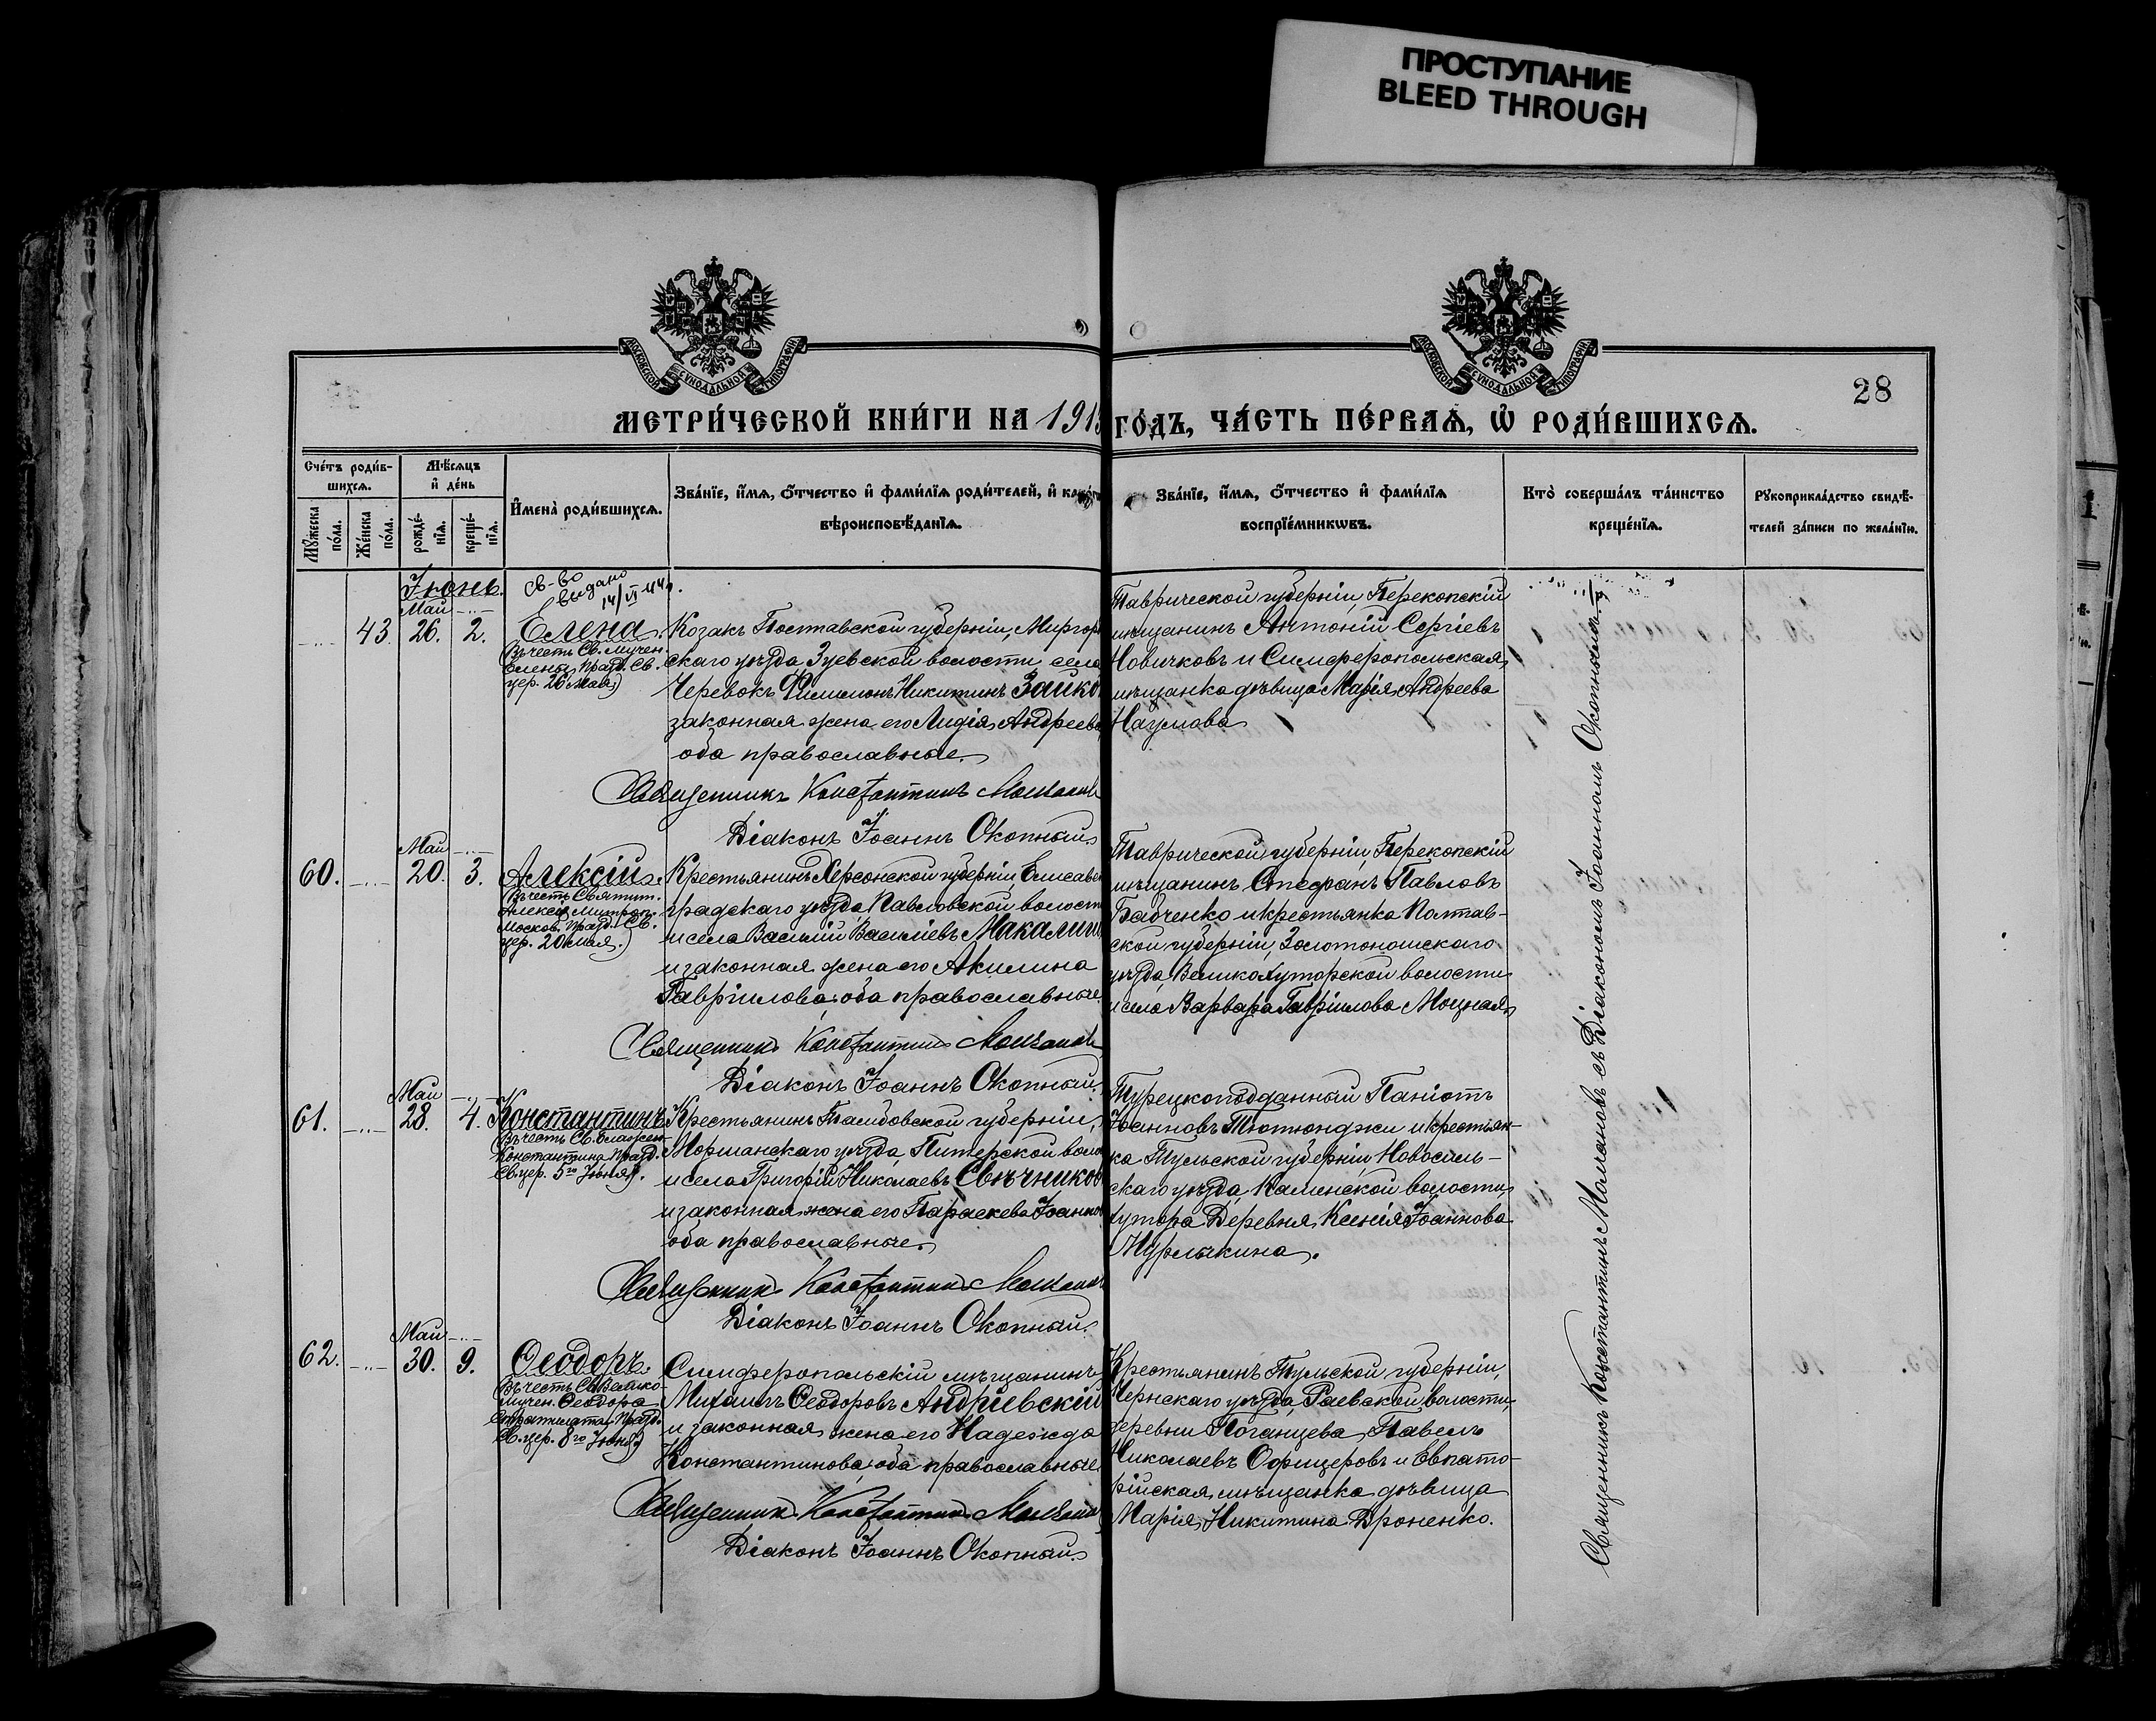 ПРОСТУПАНИЕ
BLEED THROUGH
МОСКОВСКОЙ СУНОДАЛЬНОЙ ТИПОГРАФІИ
МОСКОВСКОЙ СУНОДАЛЬНОЙ ТИПОГРАФІИ
28
МЕТРИ́ЧЕСКОЙ КНИ́ГИ НА 191
ГО́ДЪ, ЧА́СТЬ ПЕ́РВАѦ, Ѡ҆ РОДИ́ВШИХСѦ.
Сче́тъ роди́в-
шихсѧ.
Мꙋ́жеска по́ла.
Же́нска по́ла.
Мѣ́сѧцъ
и҆ де́нь
рожде́-
нїѧ.
креще́-
нїѧ.
И҆мена̀ роди́вшихсѧ.
Зва́нїе, и҆́мѧ, ѻ҆́тчество и҆ фами́лїѧ роди́телей, и҆
вѣроисповѣ́данїѧ.
Зва́нїе, и҆́мѧ, ѻ҆́тчество и҆ фами́лїѧ
воспрїе́мникѡвъ.
Кто̀ соверша́лъ та́инство
креще́нїѧ.
Рꙋкоприкла́дство свидѣ́-
телей за́писи по жела́нїю.
Іюнь.
Св-во
выдано
14/VI
Май
43. 26. 2. Елена.
Въ честь Св. Мучен.
Елены, празд. Св.
цер. 26 Мая)
Козакъ Полтавской губерніи, Миргор
скаго уѣзда, Зуевской волости, села
Черевокъ Филимонъ Никитинъ Зайко
законная жена его Лидія Андреева
оба православные.
Священникъ Константинъ Маманов
Діаконъ Іоаннъ Окопный
Таврической губерніи, Перекопскій
мѣщанинъ Антоній Сергіевъ
Новичковъ и Симферопольская
мѣщанка дѣвица Марія Андреева
Наумова
Май
60. 20. 3. Алексій.
Въ честь Святит.
Алексія Митроп.
Москов. празд. Св.
цер. 20 Мая.)
Крестьянинъ Херсонской губерніи, Елисавет
градскаго уѣзда, Павловской волост
и села Василій Василіевъ Макалиш
и законная жена его Акилина
Гавріилова; оба православные.
Священникъ Константинъ Маманов
Діаконъ Іоаннъ Окопный.
Таврической губерніи, Перекопскій
мѣщанинъ Стефанъ Павловъ
Бабченко и крестьянка Полтав-
ской губерніи, Золотоношскаго
уѣзда, Великохуторской волости
и села Варвара Гавріилова Моцная
Май
61. 28. 4. Константинъ
Въ честь Св. Блажен.
Константина празд.
Св. цер. 5го Іюня).
Крестьянинъ Тамбовской губерніи,
Моршанскаго уѣзда, Питерской воло
и села Григорій Николаевъ Свѣчников
и законная жена его Параскева Іоанно
оба православные.
Священникъ Константинъ Маманов
Діаконъ Іоаннъ Окопный.
Турецкоподданный Паніотъ
Іоанновъ Тютюнджи и крестьян-
ка Тульской губерніи, Новосиль-
скаго уѣзда, Каменской волости
хутора Деревня, Ксенія Іоаннова
Нурлыкина.
Май
62. 30. 9. Ѳеодоръ.
Въ честь Св. Велико-
мучен. Ѳеодора
Стратилата, празд.
Св. цер. 8го Іюня)
Симферопольскій мѣщанинъ
Михаилъ Ѳеодоровъ Андріевскій
и законная жена его Надежда
Константинова; оба православные.
Священникъ Константинъ Маманов
Діаконъ Іоаннъ Окопный.
Крестьянинъ Тульской губерніи,
Чернскаго уѣзда, Раевской волости,
деревни Поганцева, Павелъ
Николаевъ Офицеровъ и Евпато-
рійская мѣщанка дѣвица
Марія Никитина Дроненко.
Священникъ Константинъ Мамановъ съ Діакономъ Іоанномъ Окопнымъ